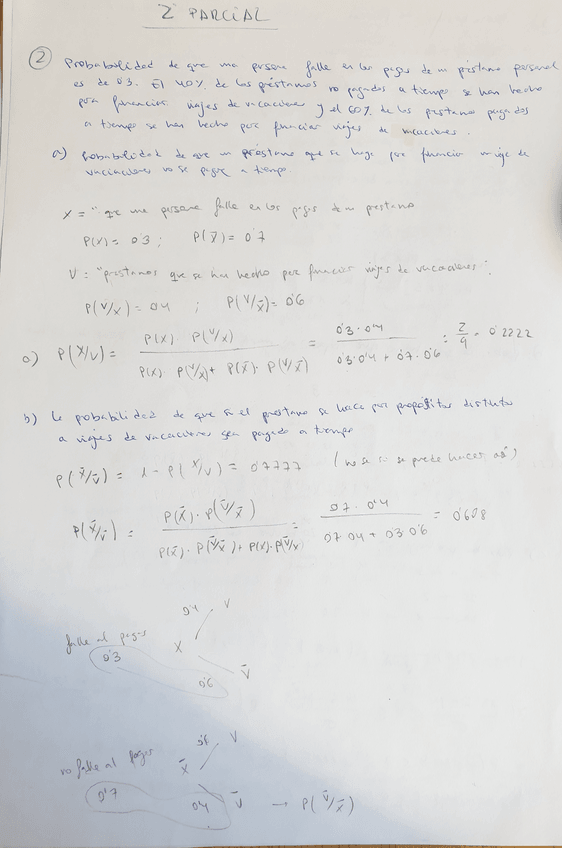 2 PARCIAL
② Probabilidad de que una persona falle en los pagos de un préstamo personal
es de 0'3. El 40% de los préstamos no pagados a tiempo se han hecho
por financiar viajes de vacaciones y el 60% de los prestamos pagados
a tiempo se han hecho por financiar viajes de vacaciones.
a) Probabilidad de que un préstamo que se haga por financiar viaje de
vacaciones no se pague a tiempo
X = "que una persona falle en los pagos de un prestamo
P(X) = 0'3 ; P(X̄) = 0'7
V = "prestamos que se han hecho por financiar viajes de vacaciones".
P(V/X) = 0'4 ; P(V/X̄) = 0'6
a) P(X/V) = P(X) · P(V/X) / P(X) · P(V/X) + P(X̄) · P(V/X̄) = 0'3 · 0'4 / 0'3 · 0'4 + 0'7 · 0'6 = 2/9 = 0'2222
b) La probabilidad de que si el prestamo se hace por propositos distintos
a viajes de vacaciones sea pagado a tiempo
P(X̄/V̄) = 1 - P(X/V) = 0'7777 (no se si se puede hacer así)
P(X̄/V̄) = P(X̄) · P(V̄/X̄) / P(X̄) · P(V̄/X̄) + P(X) · P(V̄/X) = 0'7 · 0'4 / 0'7 · 0'4 + 0'3 · 0'6 = 0'608
0'4 V
falle al pagar X
0'3
0'6 V̄
0'6 V
no falle al pagar X̄
0'7 0'4 V̄ → P(V̄/X̄)